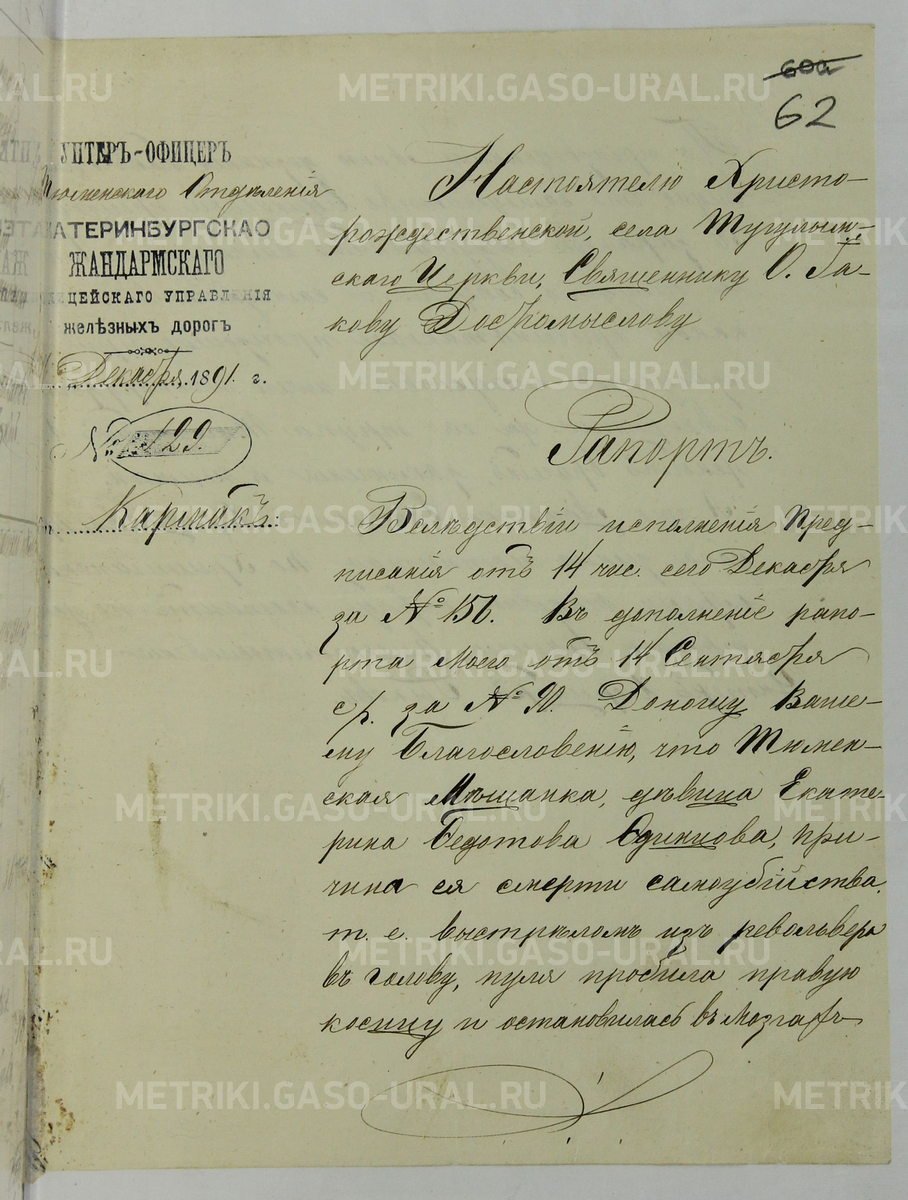 60а
62
УНТЕРЪ-ОФИЦЕРЪ
Тюменскаго Отдѣленія
АТЕРИНБУРГСКАО
ЖАНДАРМСКАГО
ЛИЦЕЙСКАГО УПРАВЛЕНІЯ
желѣзныхъ дорогъ
Декабря 1891 г.
№ 129.
Кармакъ
Настоятелю Христо-
рождественской, села Тугулым-
скаго Церкви, Священнику О. Іа-
кову Добромыслову
Рапортъ.
Вслѣдствіи исполненія Пред-
писанія отъ 14 чис. сего Декабря
за № 156. Въ дополненіе рапо-
рта Моего отъ 14 Сентября
с/г. за № 90. Доношу Ваше-
му Благословенію, что Тюмен-
ская Мѣщанка, дѣвица Екате-
рина Федотова Одинцова, при-
чина ея смерти самоубійства,
т. е. выстрѣломъ изъ револьвера
въ голову, пуля пробила правую
косицу и остановилась въ мозгахъ
METRIKI.GASO-URAL.RU